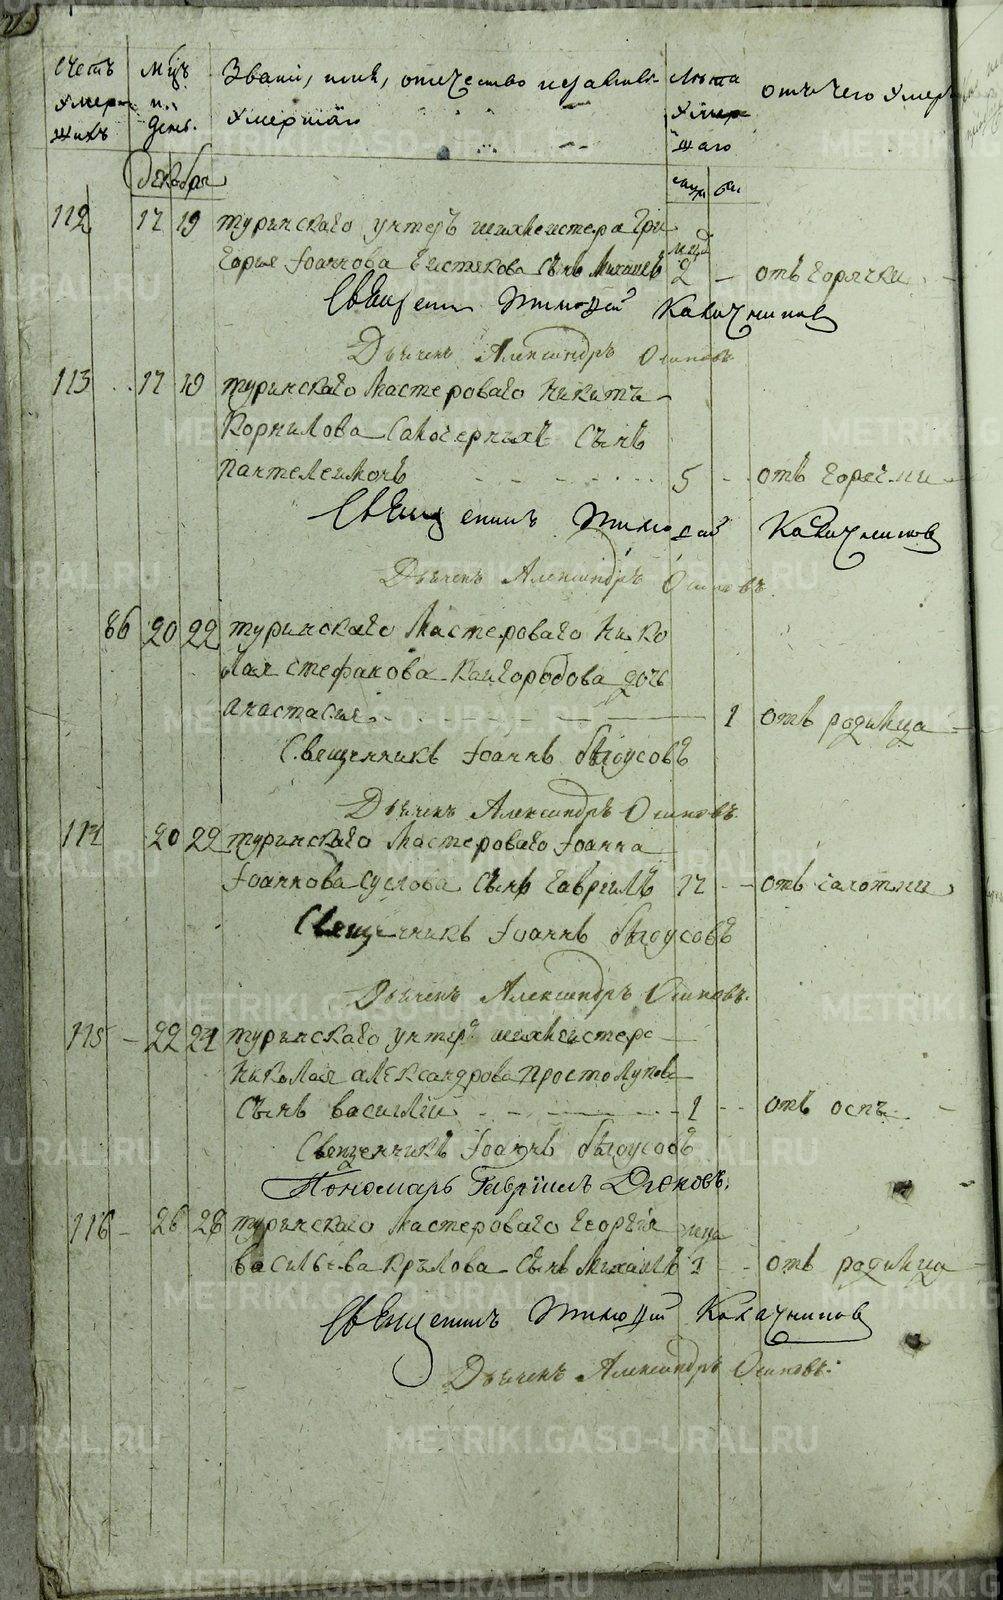 Счетъ умершихъ
Мцъ и день.
Званiи, имя, отечество и прозванiе умершаго
Лѣта умершаго
отъ чего умер
декабря
112 17 19 туринскаго унтеръ шихмейстера Гри
горья Iоаннова Чистякова сынъ Михаилъ 2 – отъ горячки
Священникъ Тимофей Калачниковъ
Дьяченъ Александръ Осиповъ
113 17 19 туринскаго Мастероваго Никиты
Корнилова Самочерныхъ сынъ
Пантелеимонъ 5 отъ горечки
Священникъ Тимофей Калачниковъ
Дьяченъ Александръ Осиповъ
86 20 22 туринскаго Мастероваго Нико
лая Стефанова Кайгородова дочь
анастасия 1 отъ родимца
Священникъ Iоаннъ Бѣлоусовъ
Дьяченъ Александръ Осиповъ
114 20 22 туринскаго Мастероваго Iоанна
Iоаннова Суслова сынъ Гаврiилъ 17 отъ
Священникъ Iоаннъ Бѣлоусовъ
Дьяченъ Александръ Осиповъ
115 22 24 туринскаго унтеръ шихмейстера
Николая александрова Простолупова
сынъ василiй 1 отъ оспы
Священникъ Iоаннъ Бѣлоусовъ
Пономарь Гаврiилъ Дюковъ
116 26 28 туринскаго Мастероваго Георгiя
васильева Крылова сынъ Михаилъ 1 отъ родимца
Священникъ Тимофей Калачниковъ
Дьяченъ Александръ Осиповъ
METRIKI.GASO-URAL.RU